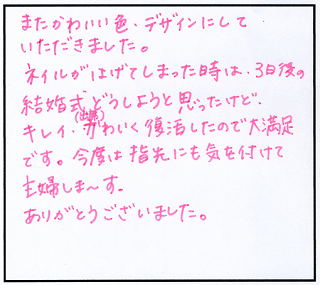 またかわいい色・デザインにして
いただきました。
ネイルがはげてしまった時は、3日後の
結婚式(出席)どうしようと思ったけど、
キレイ・かわいく復活したので大満足
です。今度は指先にも気を付けて
主婦しま〜す。
ありがとうございました。